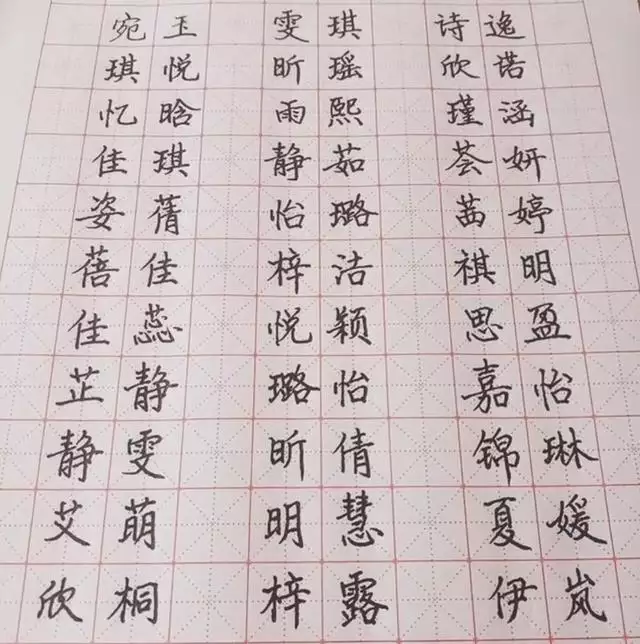 宛玉 雯琪 诗逸
琪悦 昕瑶 欣诺
忆晗 雨熙 瑾涵
佳琪 静茹 荟妍
姿蒨 怡璐 茜婷
蓓佳 梓洁 祺明
佳蕊 悦颖 思盈
芷静 璐怡 嘉怡
静雯 昕倩 锦琳
艾萌 明慧 夏媛
欣桐 梓露 伊岚